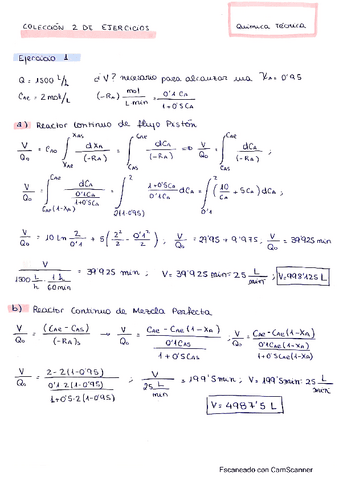 COLECCIÓN 2 DE EJERCICIOS
QUÍMICA TÉCNICA
Ejercicio 1
Q = 1500 L/h ¿V? necesario para alcanzar una XA = 0'95
CAE = 2 mol/L (-RA) mol/L·min = 0'1 CA / 1+0'5CA
a) Reactor continuo de flujo Pistón
V/Q0 = CA0 ∫XAE^XAS dXA/(-RA) = ∫CAS^CAE dCA/(-RA) ⇒ V/Q0 = ∫CAS^CAE dCA/(-RA) ;
V/Q0 = ∫CAE(1-XA)^CAE dCA / (0'1CA/1+0'5CA) = ∫2(1-0'95)^2 1+0'5CA/0'1CA dCA = ∫0'1^2 (10/CA + 5CA) dCA ;
V/Q0 = 10 Ln 2/0'1 + 5 (2²/2 - 0'1²/2) ; V/Q0 = 29'95 + 9'975 ; V/Q0 = 39'925 min
V / (1500 L/h · 1h/60min) = 39'925 min ; V = 39'925 min · 25 L/min ; V = 998'125 L
b) Reactor Continuo de Mezcla Perfecta
V/Q0 = (CAE - CAS)/(-RA)s → V/Q0 = CAE - CAE(1-XA) / (0'1CAS / 1+0'5CAS) ; V/Q0 = CAE - CAE(1-XA) / (0'1CAE(1-XA) / 1+0'5CAE(1-XA))
V/Q0 = 2-2(1-0'95) / (0'1·2(1-0'95) / 1+0'5·2(1-0'95)) ; V / 25 L/min = 199'5 min ; V = 199'5 min · 25 L/min
V = 4987'5 L
Escaneado con CamScanner